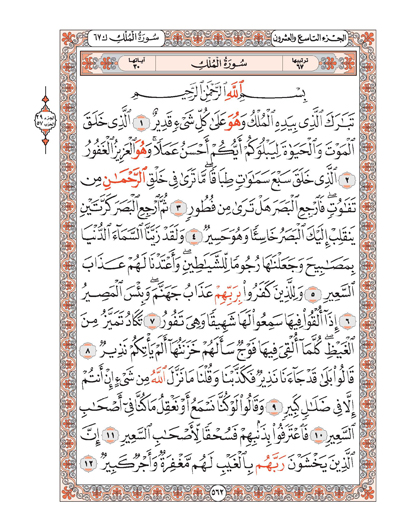 الجزء التاسع والعشرون
سُورَةُ الْمُلْكِ ٦٧
ترتيبها ٦٧ سُورَةُ الْمُلْكِ آياتها ٣٠
بِسْمِ اللَّهِ الرَّحْمَنِ الرَّحِيمِ
تَبَارَكَ الَّذِي بِيَدِهِ الْمُلْكُ وَهُوَ عَلَىٰ كُلِّ شَيْءٍ قَدِيرٌ ١ الَّذِي خَلَقَ
الْمَوْتَ وَالْحَيَوٰةَ لِيَبْلُوَكُمْ أَيُّكُمْ أَحْسَنُ عَمَلًا وَهُوَ الْعَزِيزُ الْغَفُورُ
٢ الَّذِي خَلَقَ سَبْعَ سَمَٰوَٰتٍ طِبَاقًا مَّا تَرَىٰ فِي خَلْقِ الرَّحْمَٰنِ مِن
تَفَٰوُتٍ فَارْجِعِ الْبَصَرَ هَلْ تَرَىٰ مِن فُطُورٍ ٣ ثُمَّ ارْجِعِ الْبَصَرَ كَرَّتَيْنِ
يَنقَلِبْ إِلَيْكَ الْبَصَرُ خَاسِئًا وَهُوَ حَسِيرٌ ٤ وَلَقَدْ زَيَّنَّا السَّمَاءَ الدُّنْيَا
بِمَصَٰبِيحَ وَجَعَلْنَٰهَا رُجُومًا لِّلشَّيَٰطِينِ وَأَعْتَدْنَا لَهُمْ عَذَابَ
السَّعِيرِ ٥ وَلِلَّذِينَ كَفَرُوا بِرَبِّهِمْ عَذَابُ جَهَنَّمَ وَبِئْسَ الْمَصِيرُ
٦ إِذَا أُلْقُوا فِيهَا سَمِعُوا لَهَا شَهِيقًا وَهِيَ تَفُورُ ٧ تَكَادُ تَمَيَّزُ مِنَ
الْغَيْظِ كُلَّمَا أُلْقِيَ فِيهَا فَوْجٌ سَأَلَهُمْ خَزَنَتُهَا أَلَمْ يَأْتِكُمْ نَذِيرٌ ٨
قَالُوا بَلَىٰ قَدْ جَاءَنَا نَذِيرٌ فَكَذَّبْنَا وَقُلْنَا مَا نَزَّلَ اللَّهُ مِن شَيْءٍ إِنْ أَنتُمْ
إِلَّا فِي ضَلَٰلٍ كَبِيرٍ ٩ وَقَالُوا لَوْ كُنَّا نَسْمَعُ أَوْ نَعْقِلُ مَا كُنَّا فِي أَصْحَٰبِ
السَّعِيرِ ١٠ فَاعْتَرَفُوا بِذَنبِهِمْ فَسُحْقًا لِّأَصْحَٰبِ السَّعِيرِ ١١ إِنَّ
الَّذِينَ يَخْشَوْنَ رَبَّهُم بِالْغَيْبِ لَهُم مَّغْفِرَةٌ وَأَجْرٌ كَبِيرٌ ١٢
٥٦٢